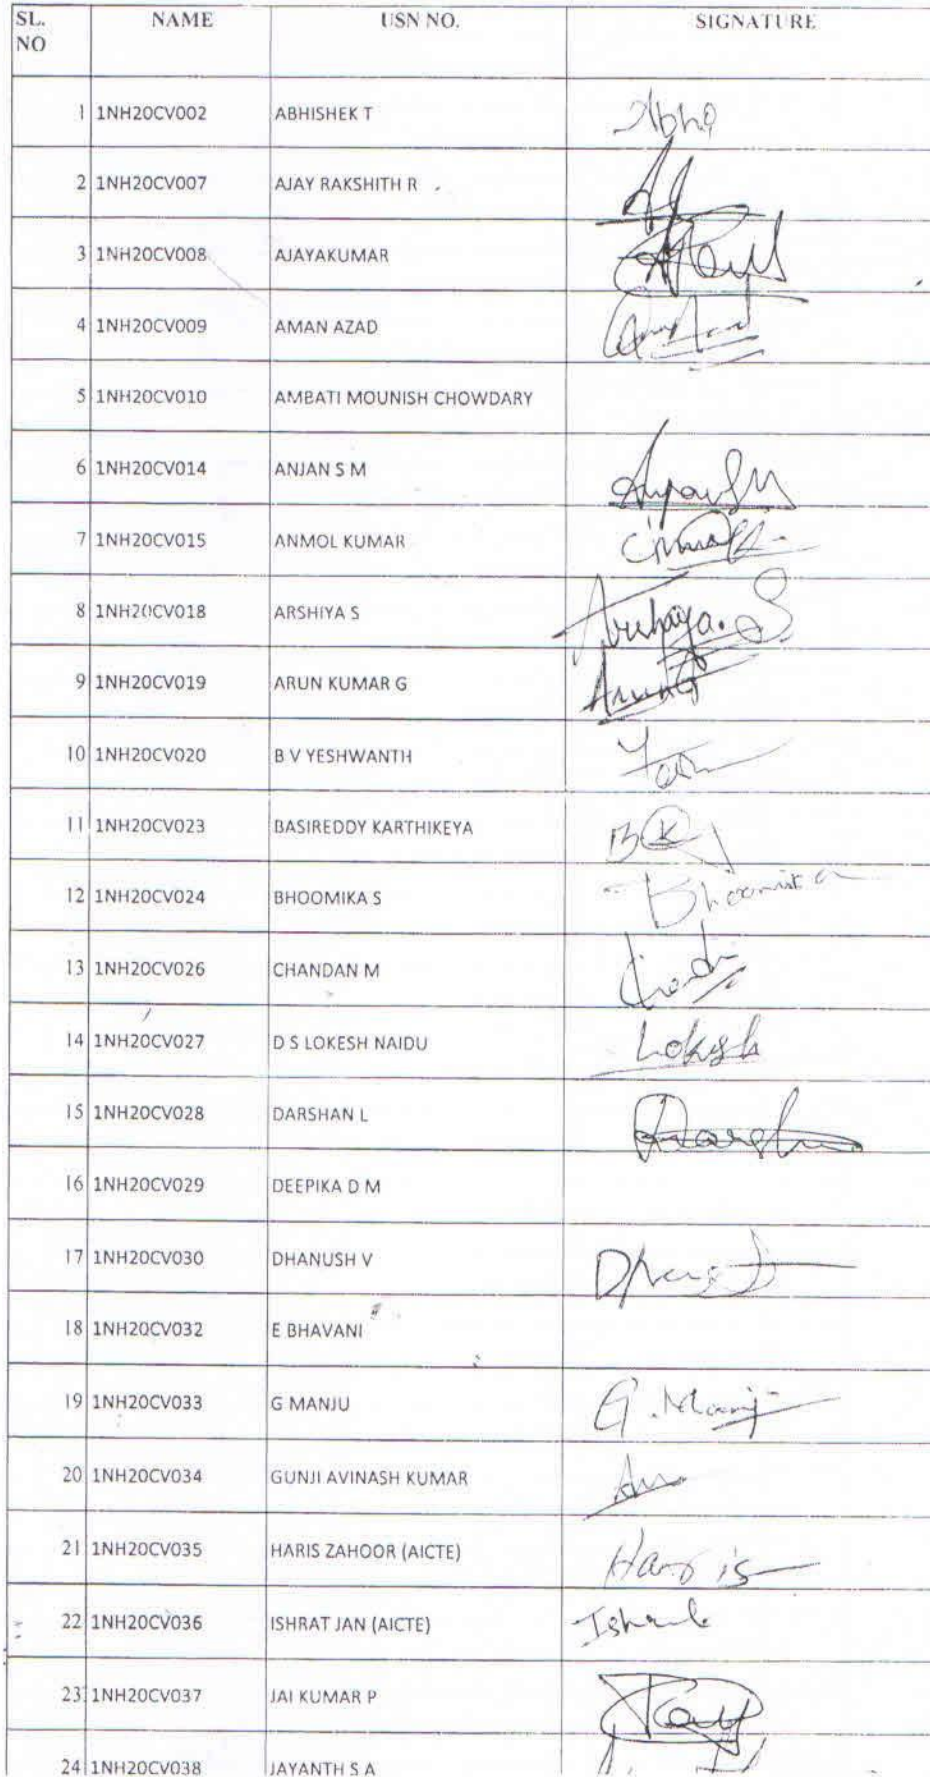 SL. NO NAME USN NO. SIGNATURE
1 1NH20CV002 ABHISHEK T Abhi
2 1NH20CV007 AJAY RAKSHITH R
3 1NH20CV008 AJAYAKUMAR
4 1NH20CV009 AMAN AZAD
5 1NH20CV010 AMBATI MOUNISH CHOWDARY
6 1NH20CV014 ANJAN S M
7 1NH20CV015 ANMOL KUMAR
8 1NH20CV018 ARSHIYA S
9 1NH20CV019 ARUN KUMAR G
10 1NH20CV020 B V YESHWANTH
11 1NH20CV023 BASIREDDY KARTHIKEYA
12 1NH20CV024 BHOOMIKA S Bhoomika
13 1NH20CV026 CHANDAN M
14 1NH20CV027 D S LOKESH NAIDU Lokesh
15 1NH20CV028 DARSHAN L
16 1NH20CV029 DEEPIKA D M
17 1NH20CV030 DHANUSH V
18 1NH20CV032 E BHAVANI
19 1NH20CV033 G MANJU G. Manju
20 1NH20CV034 GUNJI AVINASH KUMAR
21 1NH20CV035 HARIS ZAHOOR (AICTE) Haris
22 1NH20CV036 ISHRAT JAN (AICTE) Ishrat
23 1NH20CV037 JAI KUMAR P
24 1NH20CV038 JAYANTH S A